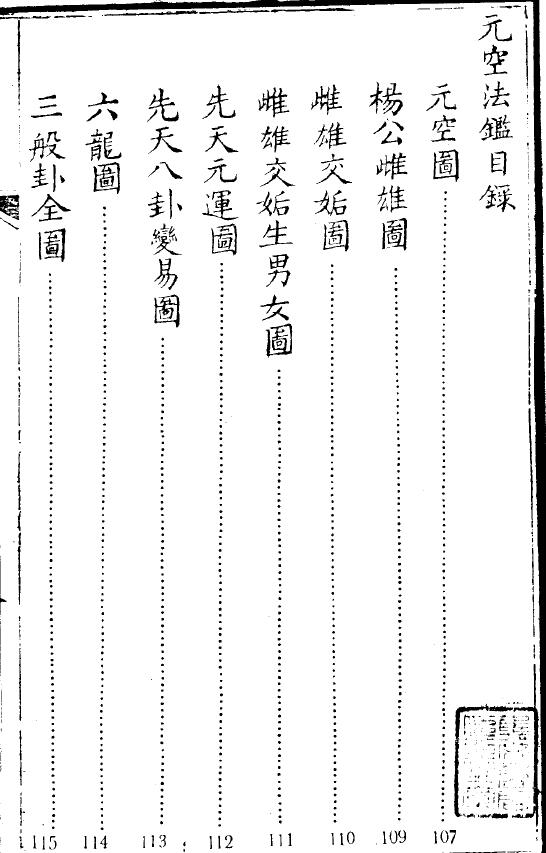 元空法鑑目録
元空圖 107
楊公雌雄圖 109
雌雄交姤圖 110
雌雄交姤生男女圖 111
先天元運圖 112
先天八卦變易圖 113
六龍圖 114
三般卦全圖 115